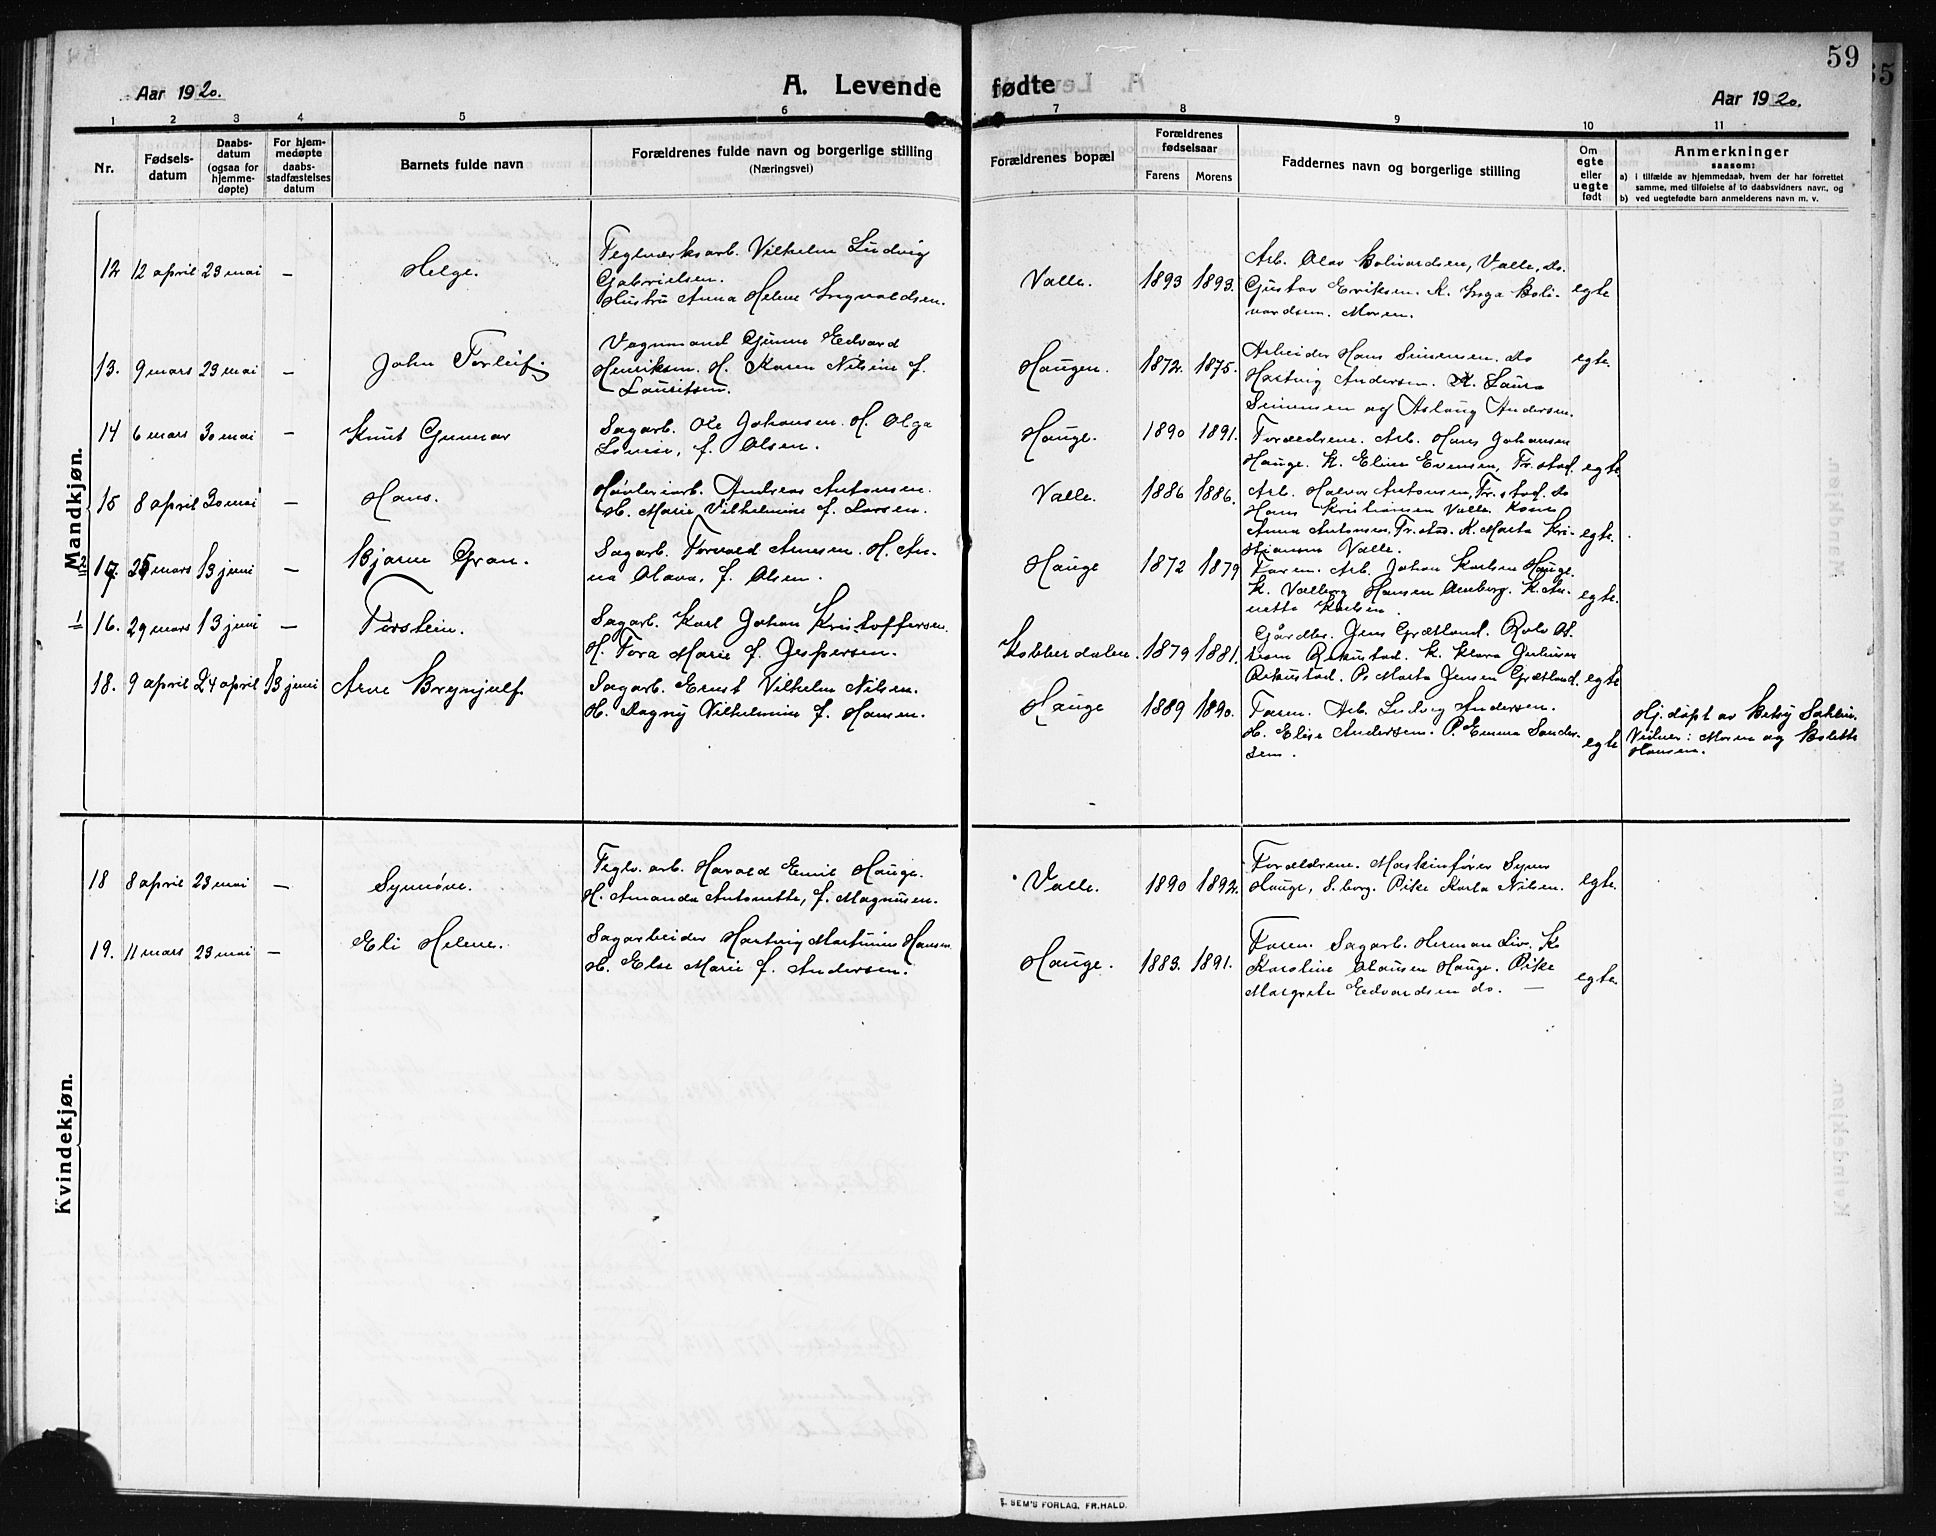 59
Aar 1920.
A. Levende fødte
Aar 1920.
1 2 3 4 5 6 7 8 9 10 11
Nr.
Fødsels-
datum
Daabs-
datum
(ogsaa for
hjemme-
døpte)
For hjem-
medøpte
daabs-
stadfæstelses
datum
Barnets fulde navn
Forældrenes fulde navn og borgerlige stilling
(Næringsvei)
Forældrenes bopæl
Forældrenes
fødselsaar
Farens Morens
Faddernes navn og borgerlige stilling
Om
egte
eller
uegte
født
Anmerkninger
saasom:
a) i tilfælde av hjemmedaab, hvem der har forrettet
samme, med tilføielse af to daabsvidners navn, og
b) ved uegtefødte barn anmelderens navn m. v.
Mandkjøn.
12 12 april 23 mai — Helge.
Teglverksarb. Vilhelm Ludvig
Gabrielsen.
Hustru Anna Helene Ingvaldsen.
Valle. 1893 1893.
Arb. Olav Bolivardsen, Valle, do.
Gustav Eriksen. K. Inga Boli-
vardsen. Moren.
egte
13. 9 mars 23 mai — John Torleif
Vognmand Gunne Edvard
Henriksen. H. Karen Nilsine f.
Lauritsen.
Haugen. 1872. 1875.
Arbeider Hans Simensen. do
Hartvig Andersen. K. Laura
Simensen og Aslaug Andersen.
egte.
14 6 mars 30 mai — Knut Gunnar
Sagarb. Ole Johansen. H. Olga
Lovise, f. Olsen.
Hauge. 1890 1891.
Forældrene. Arb. Hans Johansen
Hauge. K. Eline Evensen, Fr.stad.
egte
15 8 april 30 mai — Hans.
Høvleriarb. Andreas Antonsen.
H. Marie Vilhelmine f. Larsen.
Valle. 1886 1886.
Arb. Halvor Antonsen, Fr.stad. do
Hans Kristiansen Valle. Kone
Anna Antonsen, Fr.stad. K. Marta Kri-
stiansen Valle.
egte.
2 17. 25 mars 13 juni — Bjarne Gran.
Sagarb. Torvald Arnesen. H. An-
na Olava, f. Olsen.
Hauge 1872 1879
Faren. Arb. Johan Karlsen Hauge.
K. Valborg Hansen K. An-
netta Karlsen.
egte.
1 16. 29 mars 13 juni — Torstein.
Sagarb. Karl Johan Kristoffersen.
H. Tora Marie f. Jespersen.
Kobberdalen. 1879 1881.
Gårdbr. Jens Grætland. Rolv
Rekustad. K. Klara Juliussen
Rekustad. P. Marta Jensen Grætland.
egte
18. 9 april 24 april 13 juni Arne Brynjulf
Sagarb. Ernst Vilhelm Nilsen.
H. Dagny Vilhelmine f. Hansen.
Hauge 1889 1890.
Faren. Arb. Ludvig Andersen.
H. Elise Andersen. P. Emma Sander-
sen.
egte
Hj. døpt av Betsy
Vidner: Moren og Bolette
Hansen.
Kvindekjøn.
18 8 april 23 mai — Synnøve.
Teglv. arb. Harald Emil Hauge.
H. Amanda Antonette, f. Magnussen.
Valle. 1890 1892.
Forældrene. Maskinfører Syver
Hauge, S.borg. Pike Karla Nilsen.
egte.
19. 11 mars 23 mai — Eli Helene.
Sagarbeider Hartvig Martinius Hansen
H. Else Marie f. Andersen.
Hauge. 1883. 1891.
Faren. Sagarb. Herman Liv. K
Karoline Olausen Hauge. Pike
Margrete Edvardsen do. —
egte.
E. SEM'S FORLAG, FR.HALD.